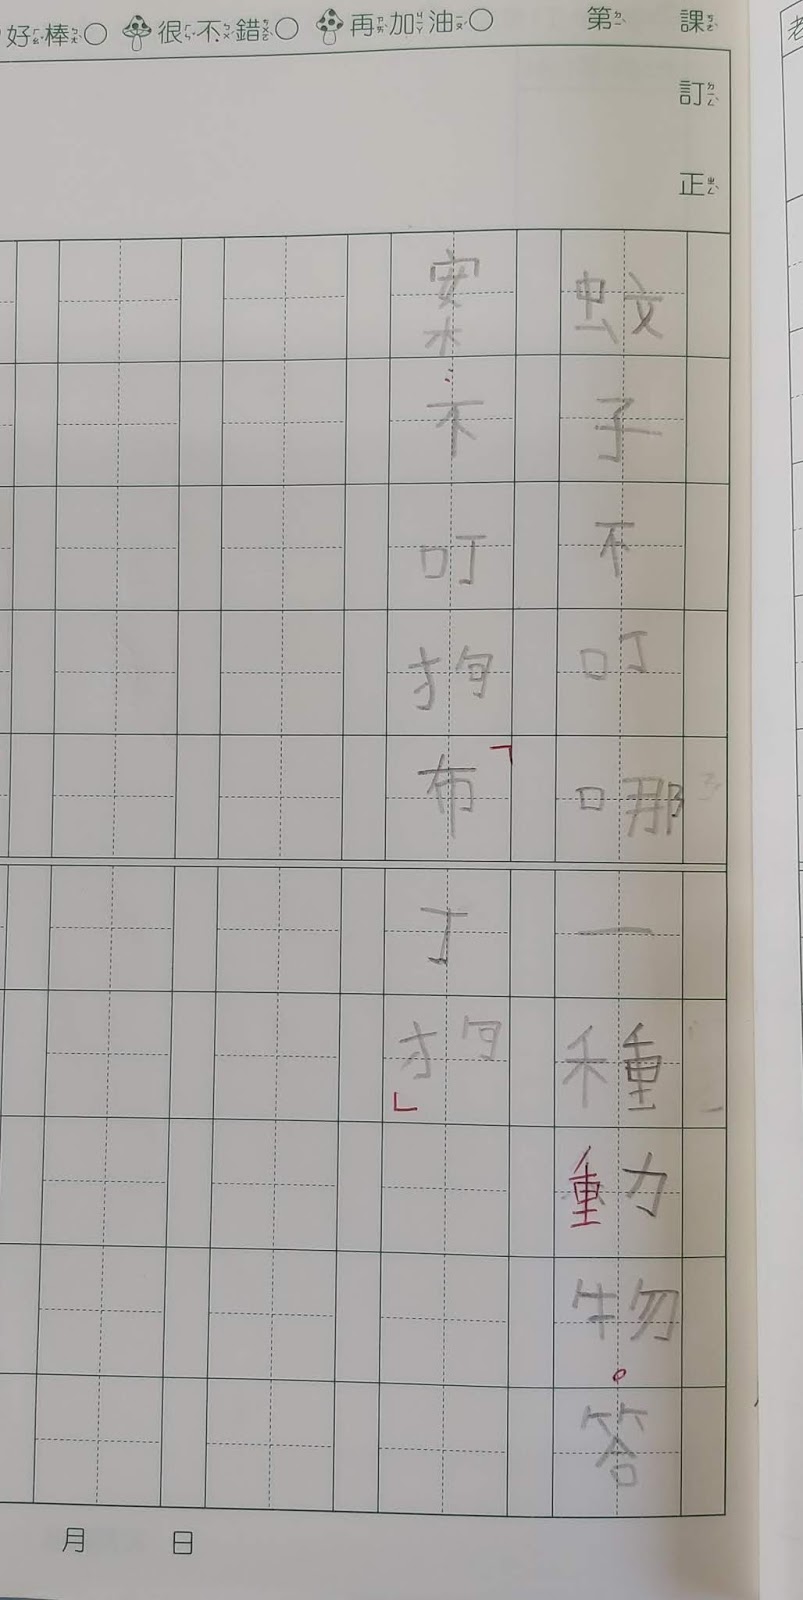 好棒○ 很不錯○ 再加油○ 第 課
訂正
蚊子不叮哪一種動物。答
案：不叮狗「布丁狗」
月 日